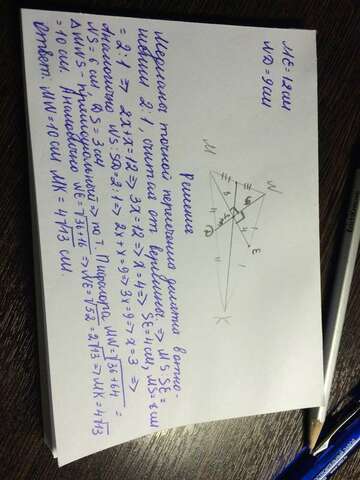 ME = 12 см
NQ = 9 см
Решение
Медианы точкой пересечения делятся в отно-
шении 2:1, считая от вершины. ⇒ MS:SE =
= 2:1 ⇒ 2x+x=12 ⇒ 3x=12 ⇒ x=4 ⇒ SE=4 см, MS=8 см
Аналогично NS:SQ=2:1 ⇒ 2x+x=9 ⇒ 3x=9 ⇒ x=3 ⇒
NS=6 см QS=3 см
△ MNS - прямоугольный ⇒ по т. Пифагора MN=√36+64 =
= 10 см. Аналогично NE=√36+16 ⇒ NE=√52=2√13 ⇒ NK=4√13
Ответ: MN=10 см NK=4√13 см.
M
N
Q
E
K